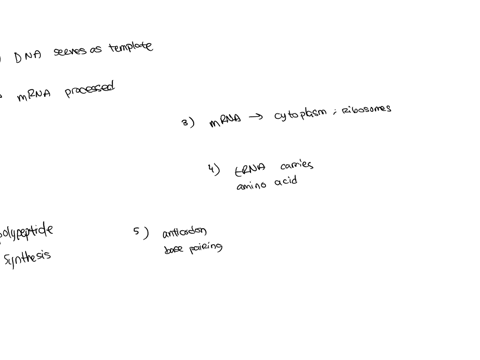 ) DNA serves as template
mRNA processed
3) mRNA → cytoplasm ; ribosomes
4) tRNA carries
amino acid
5) anticodon
base pairing
olypeptide
synthesis